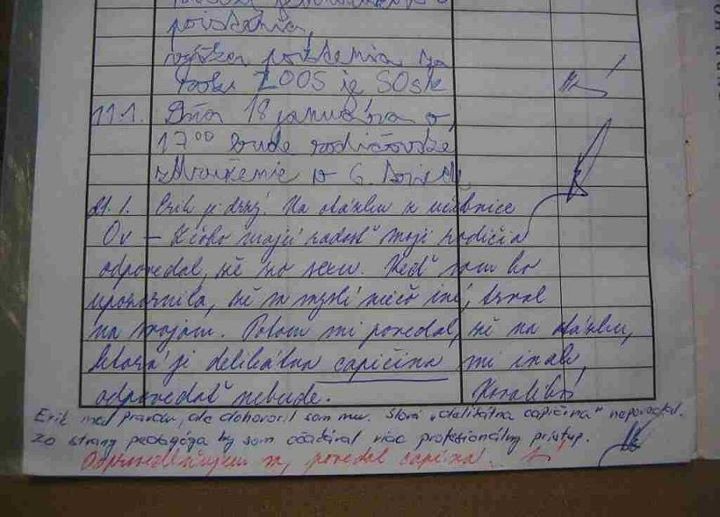 povstania,
výška poistenia na
rok 2005 je 50sk
11.1. Dňa 18 januára o
17 00 bude rodičovské
združenie v 6. triede
21.1. Erik je drzý. Na otázku z učebnice
Ov – Z čoho majú radosť moji rodičia
odpovedal, že zo sexu. Keď som ho
upozornila, že sa myslí niečo iné, trval
na svojom. Potom mi povedal, že na otázku,
ktorá je delikátna capičina mi inak
odpovedať nebude.
Erik mal pravdu, ale dohovoril som mu. Slovo „delikátna capičina" nepovedal.
Zo strany pedagóga by som očakával viac profesionálny prístup.
Ospravedlňujem sa, povedal capina.